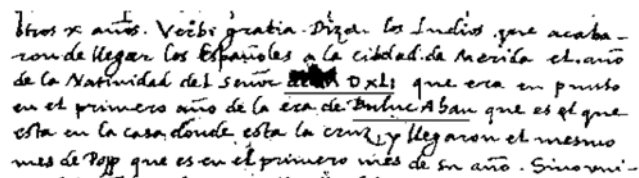 otros x años. Verbi gratia. Dizen los Indios que acaba-
ron de llegar los Españoles a la cibdad de Merida el año
de la Natividad del Señor DxLi que era en punto
en el primero año de la era de Buluc Ahau que es el que
esta en la casa donde esta la cruz, y llegaron el mesmo
mes de Pop que es en el primero mes de su año. Sino vini-